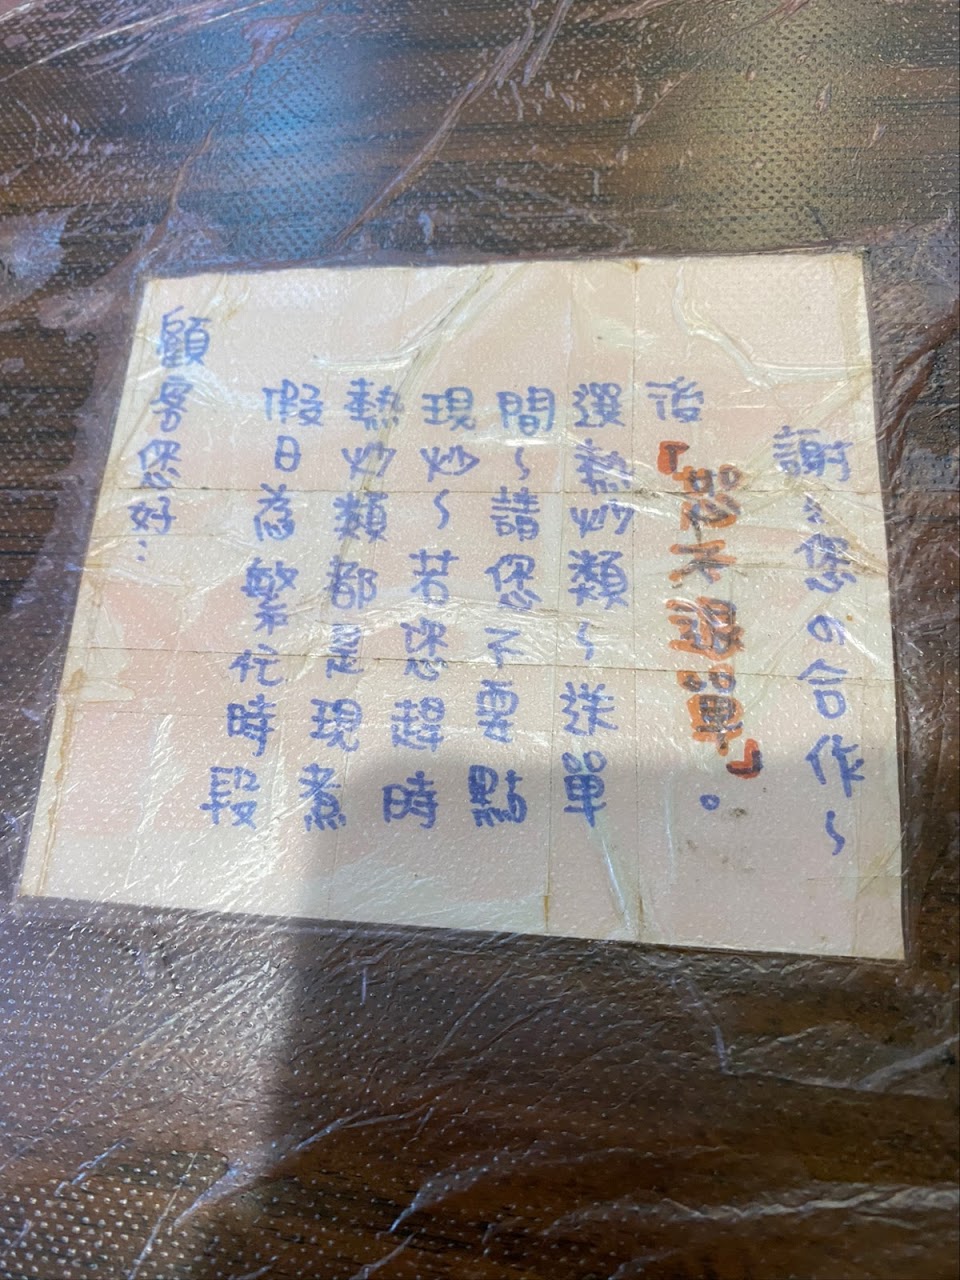 顧客您好：
假日為繁忙時段
熱炒類都是現煮
現炒～若您趕時
間～請您不要點
選熱炒類～送單
後『恕不退單』。
謝謝您の合作～